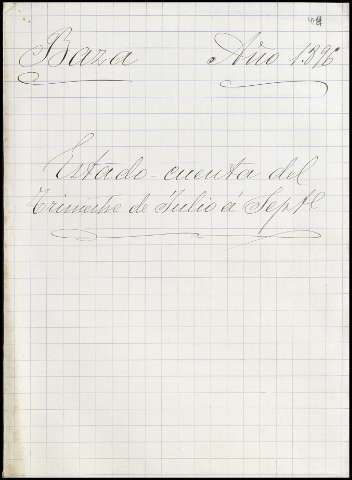 Baza Año 1896
Estado-cuenta del
Trimestre de Julio á Septe